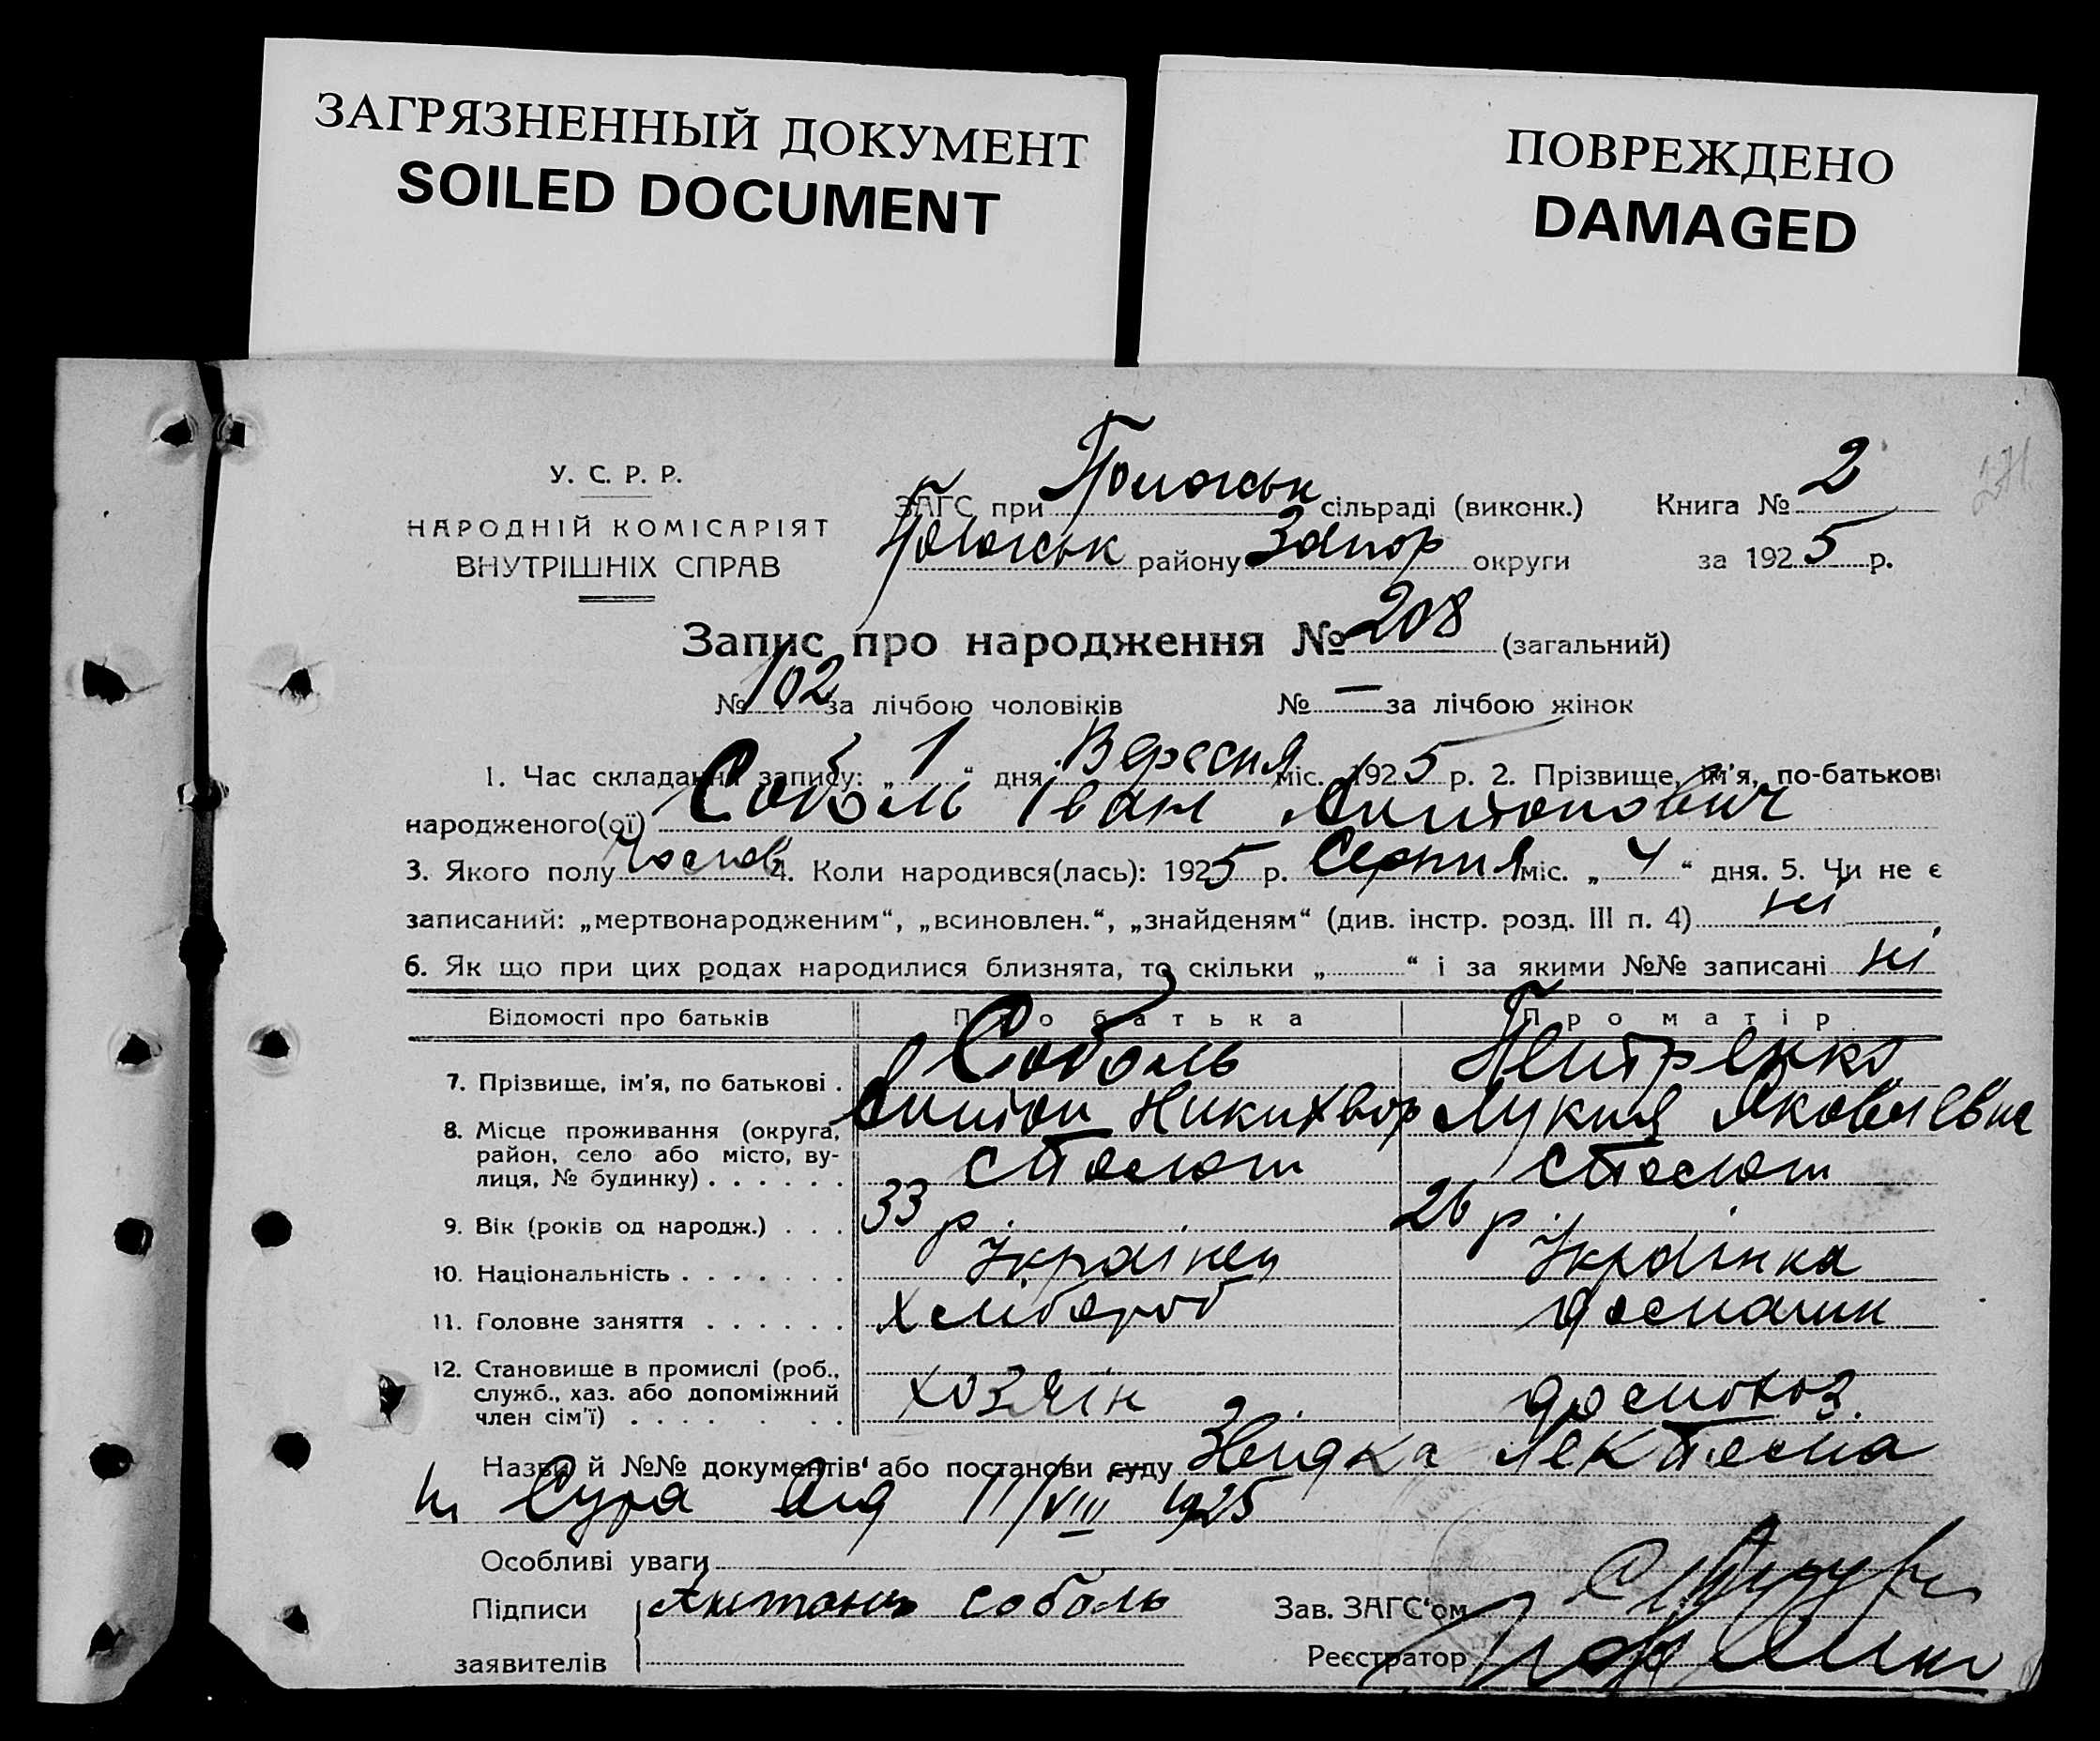 ЗАГРЯЗНЕННЫЙ ДОКУМЕНТ
SOILED DOCUMENT
ПОВРЕЖДЕНО
DAMAGED
У. С. Р. Р.
НАРОДНІЙ КОМІСАРІЯТ
ВНУТРІШНІХ СПРАВ
ЗАГС при сільраді (виконк.) Книга № 2
району Запор округи за 1925 р.
Запис про народження № 208 (загальний)
№ 102 за лічбою чоловіків № — за лічбою жінок
1. Час складання запису: „1“ дня Вересня міс. 1925 р. 2. Прізвище, ім'я, по-батькові
народженого(ої) Соболь Іван Антонович
3. Якого полу 4. Коли народився(лась): 1925 р. Серпня міс. „4“ дня. 5. Чи не є
записаний: „мертвонародженим“, „всиновлен.“, „знайденям“ (див. інстр. розд. III п. 4) ні
6. Як що при цих родах народилися близнята, то скільки „ “ і за якими №№ записані ні
Відомості про батьків Про батька Про матір
7. Прізвище, ім'я, по батькові . Соболь Антон Петренко Лукія Яковлевна
8. Місце проживання (округа,
район, село або місто, ву-
лиця, № будинку) . . . . . .
9. Вік (років од народж.) . . . 33 р. 26 р.
10. Національність . . . . . . . Українец Українка
11. Головне заняття . . . . . . Хлібороб
12. Становище в промислі (роб.,
служб., хаз. або допоміжний
член сім'ї) . . . . . . . хозяін
Назва й №№ документів або постанови суду
од 11/VIII 1925
Особливі уваги
Підписи Антонъ Соболь Зав. ЗАГС'ом
заявителів Реєстратор